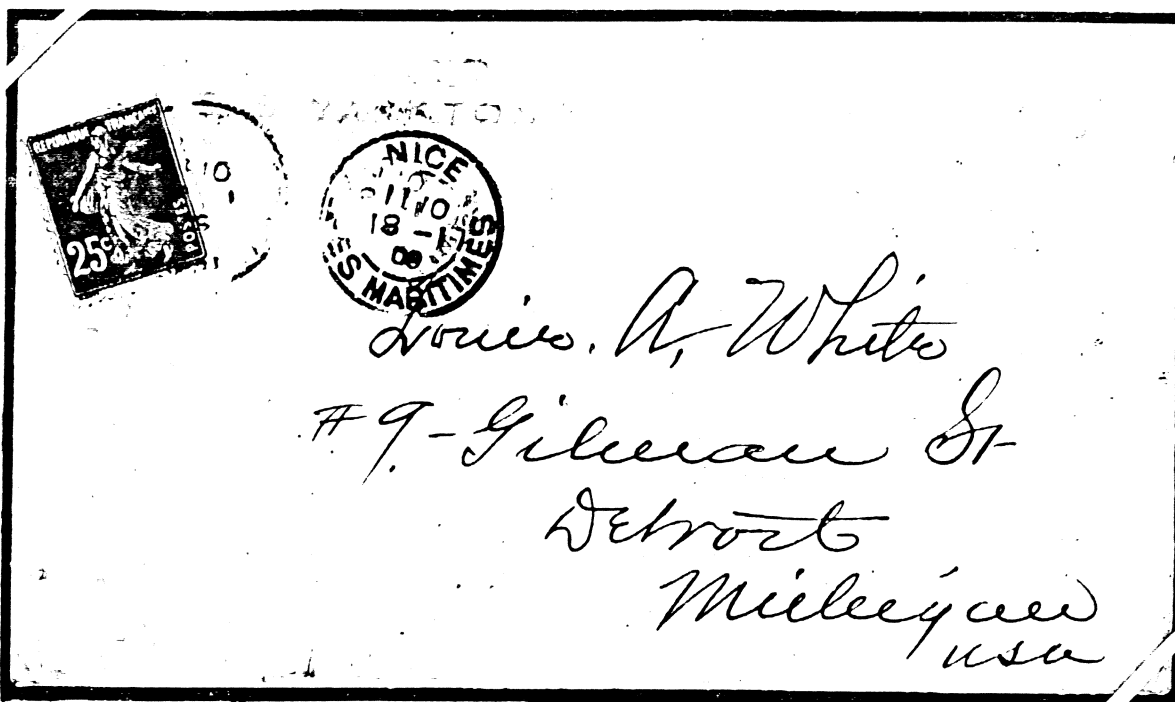 YANKTON
REPUBLIQUE FRANÇAISE
25c
POSTES
NICE
11 40
18 - 1
08
ES MARITIMES
Louis. A, White
#9 - Gilman St
Detroit
Michigan
USA